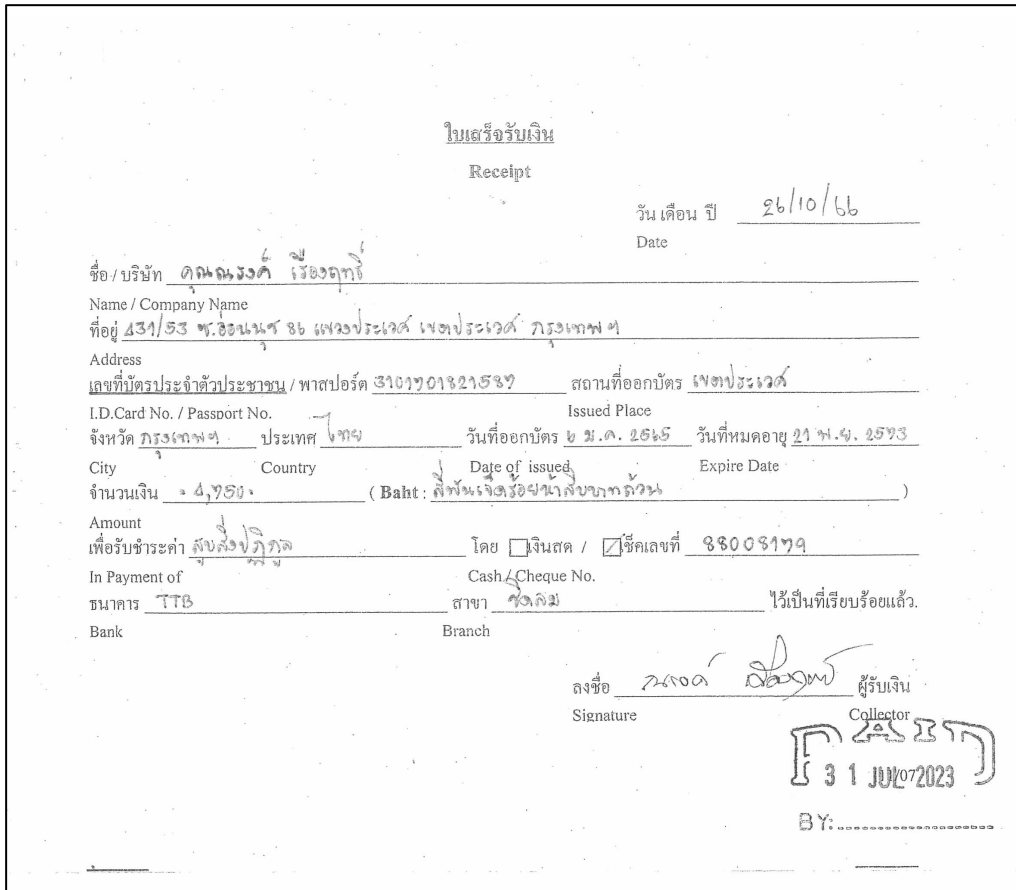 ใบเสร็จรับเงิน
Receipt
วัน เดือน ปี 26/10/66
Date
ชื่อ / บริษัท คุณณรงค์ เรืองฤทธิ์
Name / Company Name
ที่อยู่ 431/53 ซ.อ่อนนุช 86 แขวงประเวศ เขตประเวศ กรุงเทพฯ
Address
เลขที่บัตรประจำตัวประชาชน / พาสปอร์ต 3101701821587 สถานที่ออกบัตร เขตประเวศ
I.D.Card No. / Passport No. Issued Place
จังหวัด กรุงเทพฯ ประเทศ ไทย วันที่ออกบัตร 6 ม.ค. 2565 วันที่หมดอายุ 21 พ.ย. 2573
City Country Date of issued Expire Date
จำนวนเงิน 4,750. ( Baht : สี่พันเจ็ดร้อยห้าสิบบาทถ้วน )
Amount
เพื่อรับชำระค่า สูบสิ่งปฏิกูล โดย เงินสด / เช็คเลขที่ 88008179
In Payment of Cash / Cheque No.
ธนาคาร TTB สาขา ชิดลม ไว้เป็นที่เรียบร้อยแล้ว.
Bank Branch
ลงชื่อ ณรงค์ เรืองฤทธิ์ ผู้รับเงิน
Signature Collector
PAID
31 JUL/07 2023
BY: